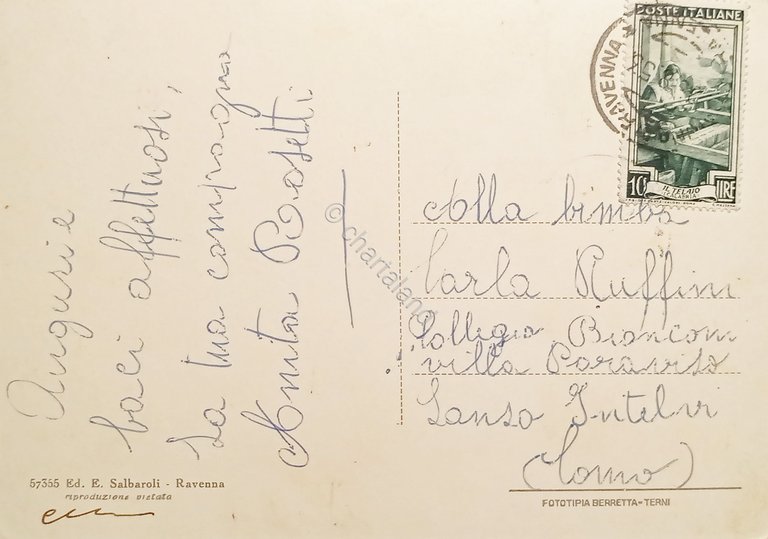 Auguri e
baci affettuosi,
la tua compagna
Anita Rosetti
POSTE ITALIANE
RAVENNA
10 LIRE
IL TELAIO
CALABRIA
Alla bimba
Carla Ruffini
Collegio Bianconi
villa Paraviso
Lanso Intelvi
(Como)
57355 Ed. E. Salbaroli - Ravenna
riproduzione vietata
FOTOTIPIA BERRETTA-TERNI
© chartaland